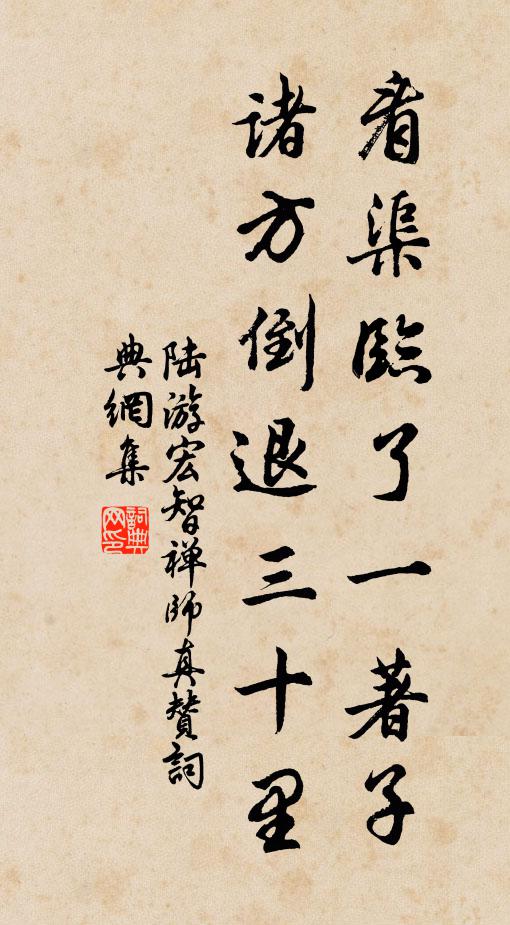 看渠臨了一著子
諸方倒退三十里
陸游宏智禅師真賛詞
典網集
詞典網印